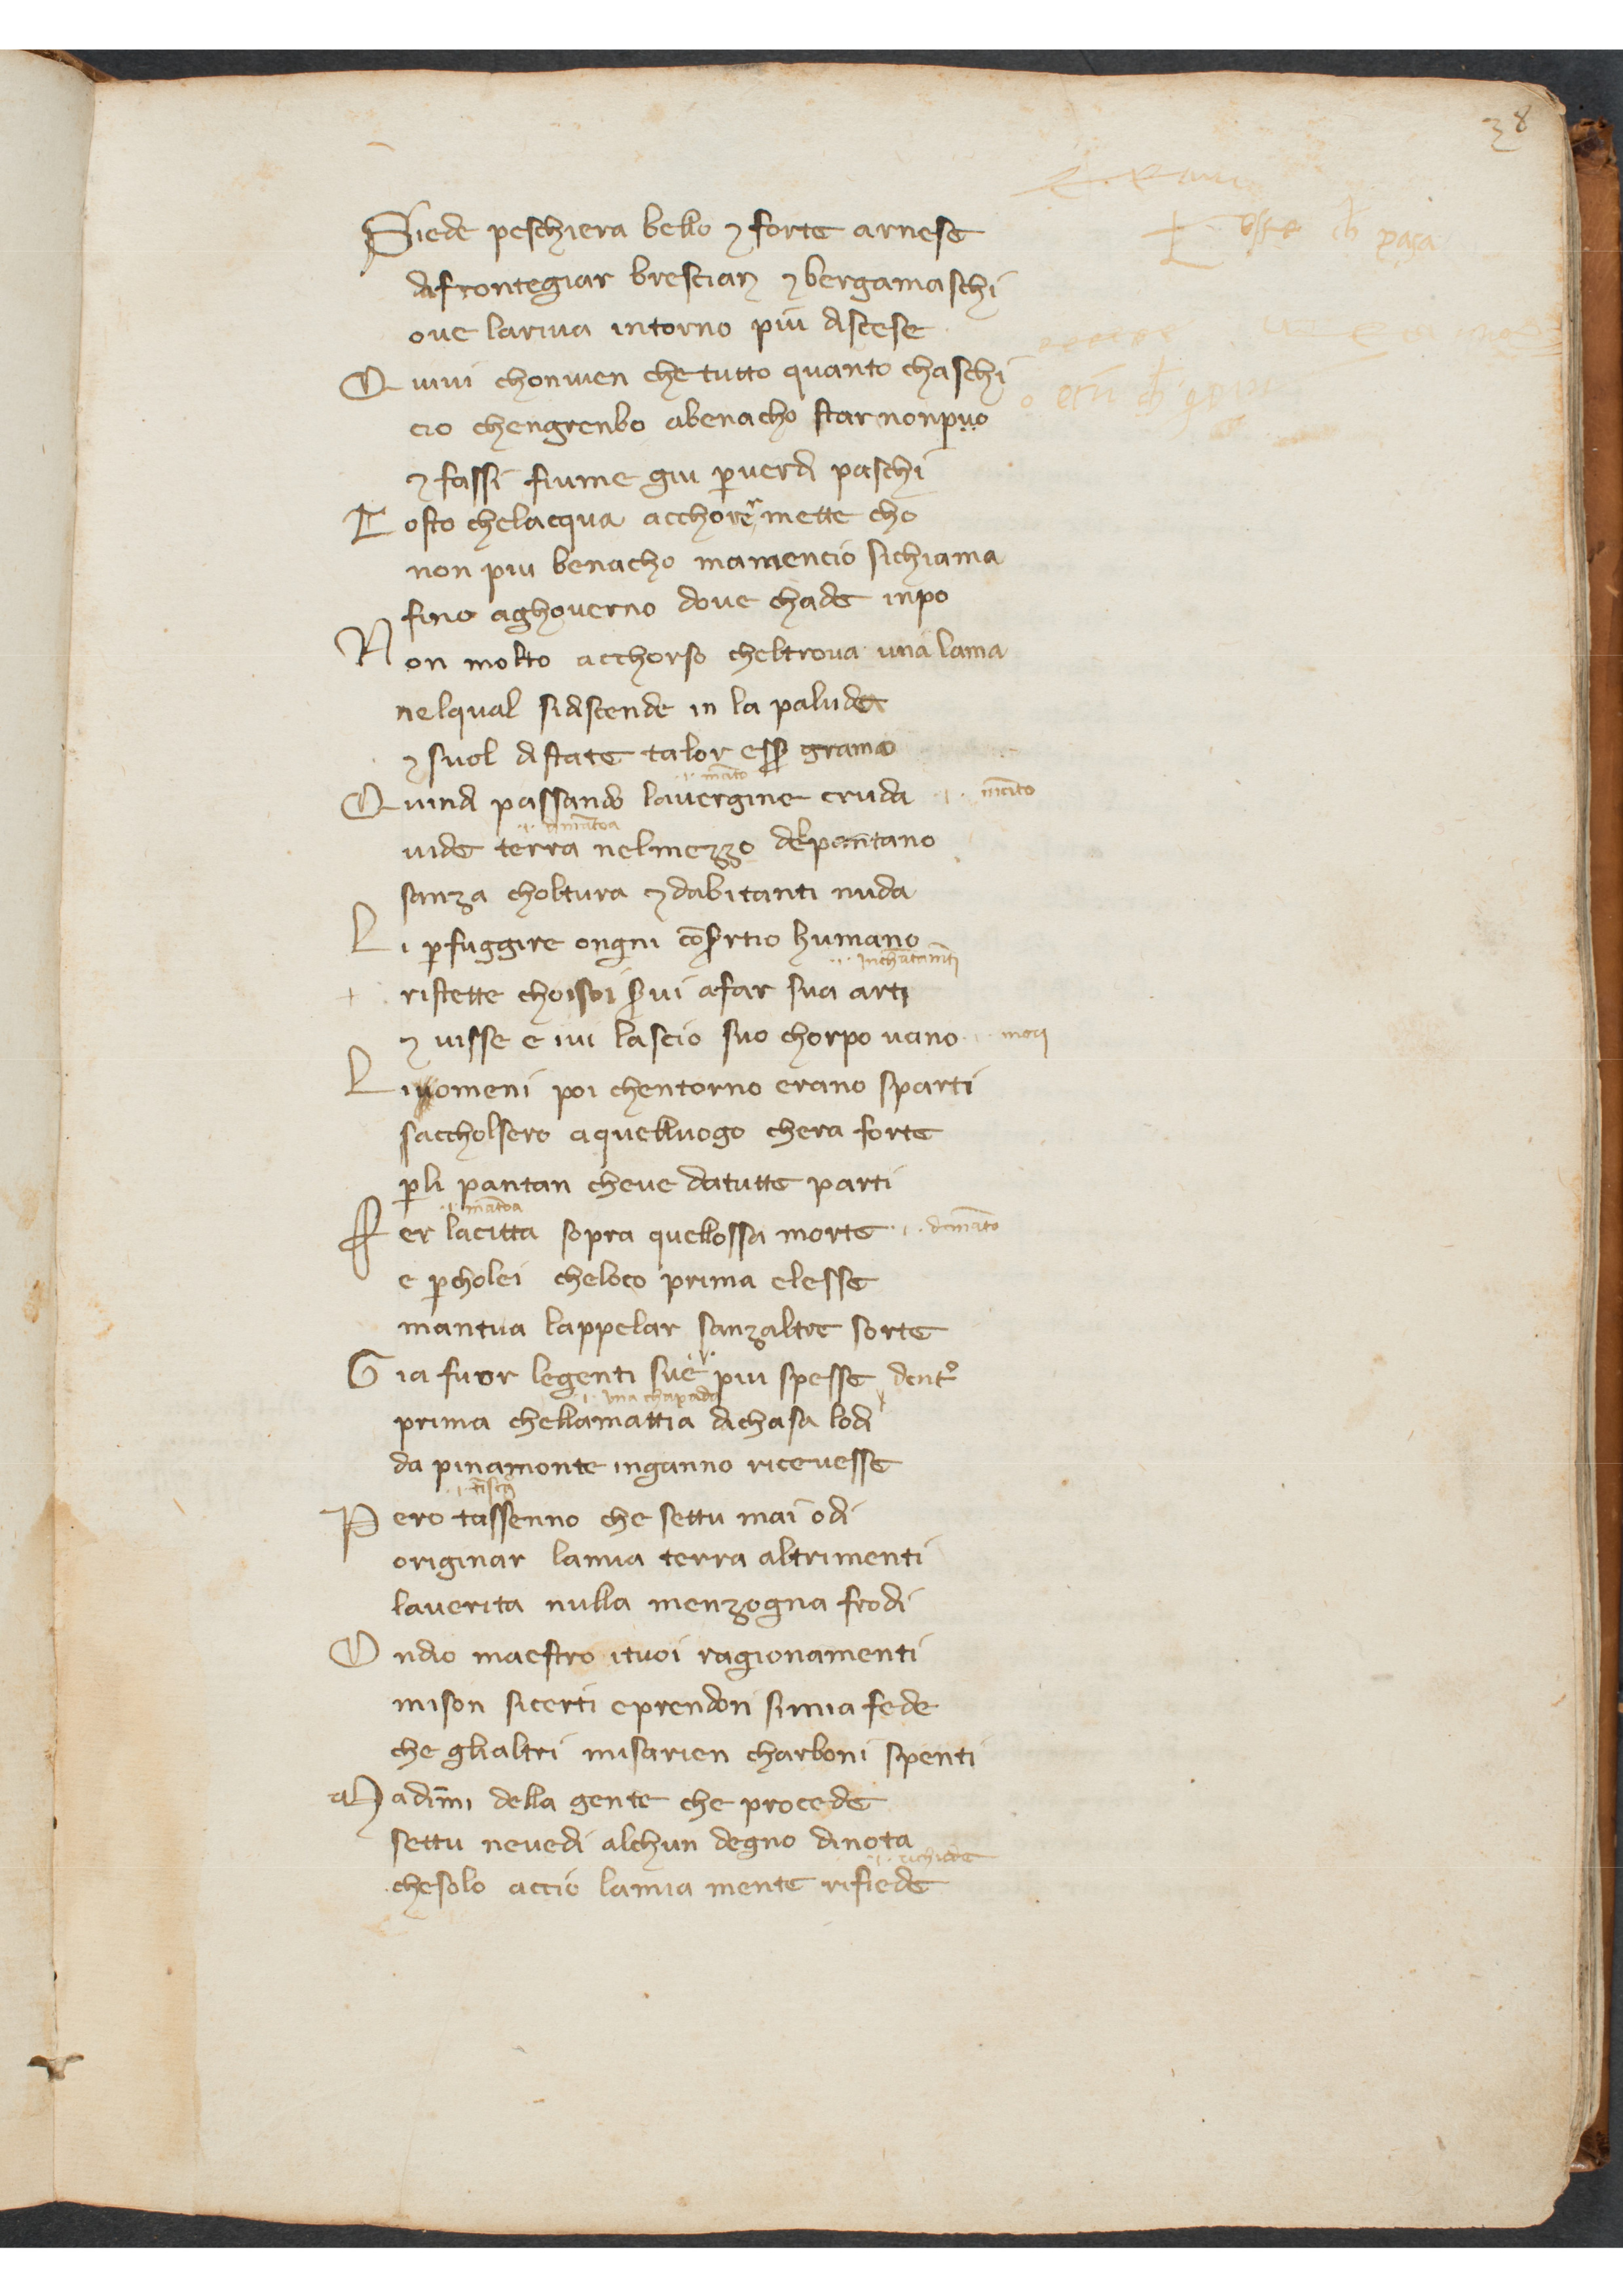 38
Siede peschiera bello ⁊ forte arnese
dafrontegiar brescian ⁊ bergamaschi
oue lariua intorno piu discese
Quiui chonuien che tutto quanto chaschi
cio chengrenbo abenacho star non puo
⁊ fassi fiume giu ꝑ uerdi paschi
Tosto chelacqua acchorer mette cho
non piu benacho mamencio sichiama
fino aghouerno doue chade inpo
Non molto acchorso cheltroua una lama
nelqual sidiscende in la palude
⁊ suol distate talor esser grama
.i. mãto
Quindi passando lauergine cruda .i. mãto
.i. di mãtoa
uide terra nelmezzo del pantano
sanza choltura ⁊ dabitanti nuda
Li ꝑ fuggire ongni cõsertio humano
.i. inchãtamẽti
+ ristette choisoi serui afar sua arti
⁊ uisse e iui lascio suo chorpo uano .i. mori
Liuomeni poi chentorno erano sparti
sacchólsero aquelluogo chera forte
ꝑli pantan cheue datutte parti
.i. mãtoa
Fer lacitta sopra quellossa morte .i. di mãto
e ꝑcholei cheloco prima elesse
mantua lappelar sanzaltre sorte
Gia fuor legenti sue piu spesse dentro
prima chellamattia dichasa lodi
da pinamonte inganno riceuesse
Pero tassenno che settu mai odi
originar lamia terra altrimenti
lauerita nulla menzogna frodi
Ondio maestro ituoi ragionamenti
mison sicerti e prendon simia fede
che glialtri misarien charboni spenti
Ma dimmi della gente che procede
settu neuedi alchun degno dinota
.i. richiede
chesolo accio lamia mente rifiede